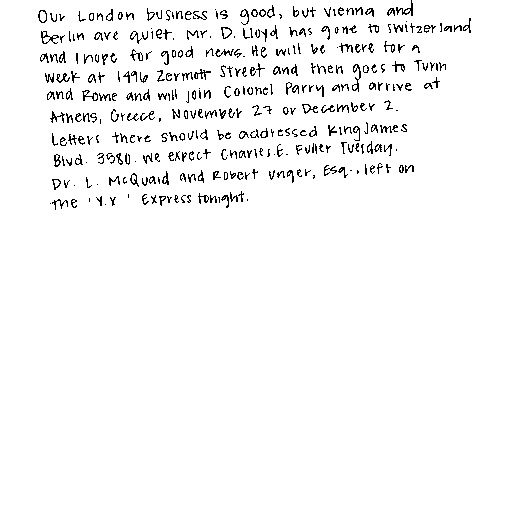 Our London business is good, but Vienna and
Berlin are quiet. Mr. D. Lloyd has gone to Switzerland
and I hope for good news. He will be there for a
week at 1496 Zermott Street and then goes to Turin
and Rome and will join Colonel Parry and arrive at
Athens, Greece, November 27 or December 2.
Letters there should be addressed King James
Blvd. 3580. We expect Charles E. Fuller Tuesday.
Dr. L. McQuaid and Robert Unger, Esq., left on
the 'Y.X' Express tonight.